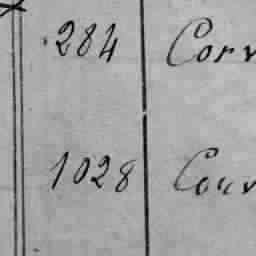 284 Corv
1028 Couv